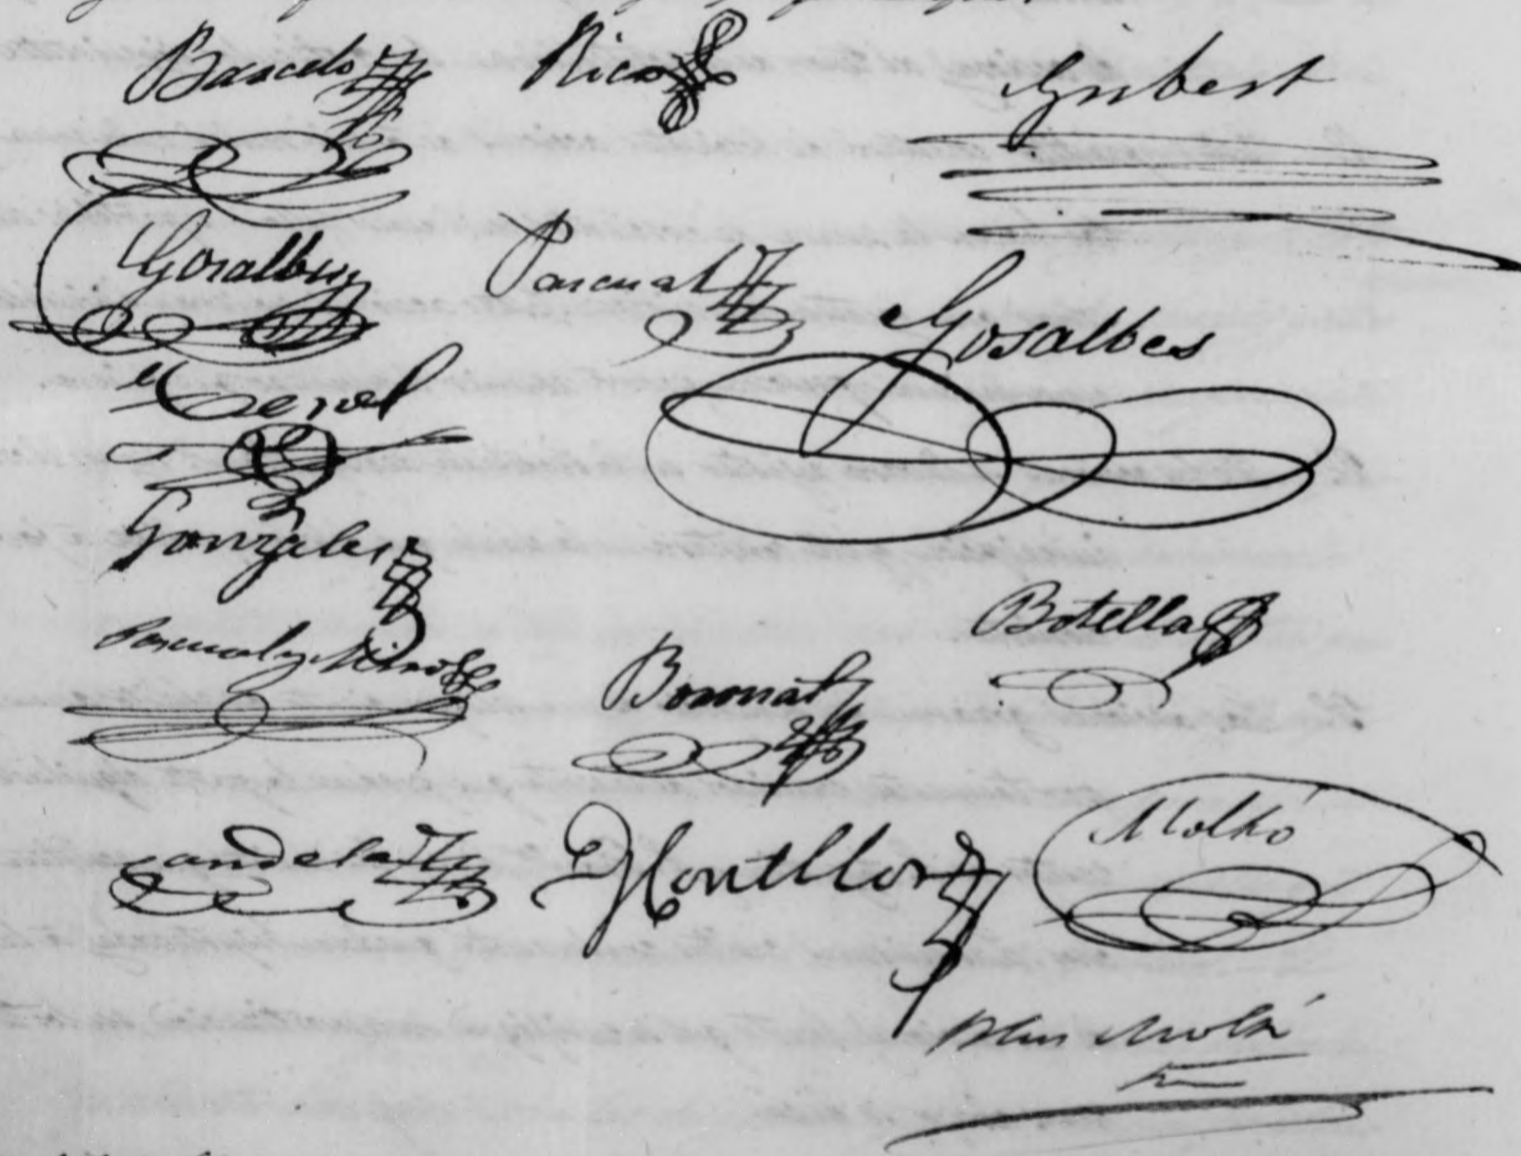 Barcelo Rico Gisbert
Gosalbez Pascual Gosalbes
Terol
Gonzalez
Pascual y Miro Boronat Botella
Candela Montllor Moltó
Blas Moltó